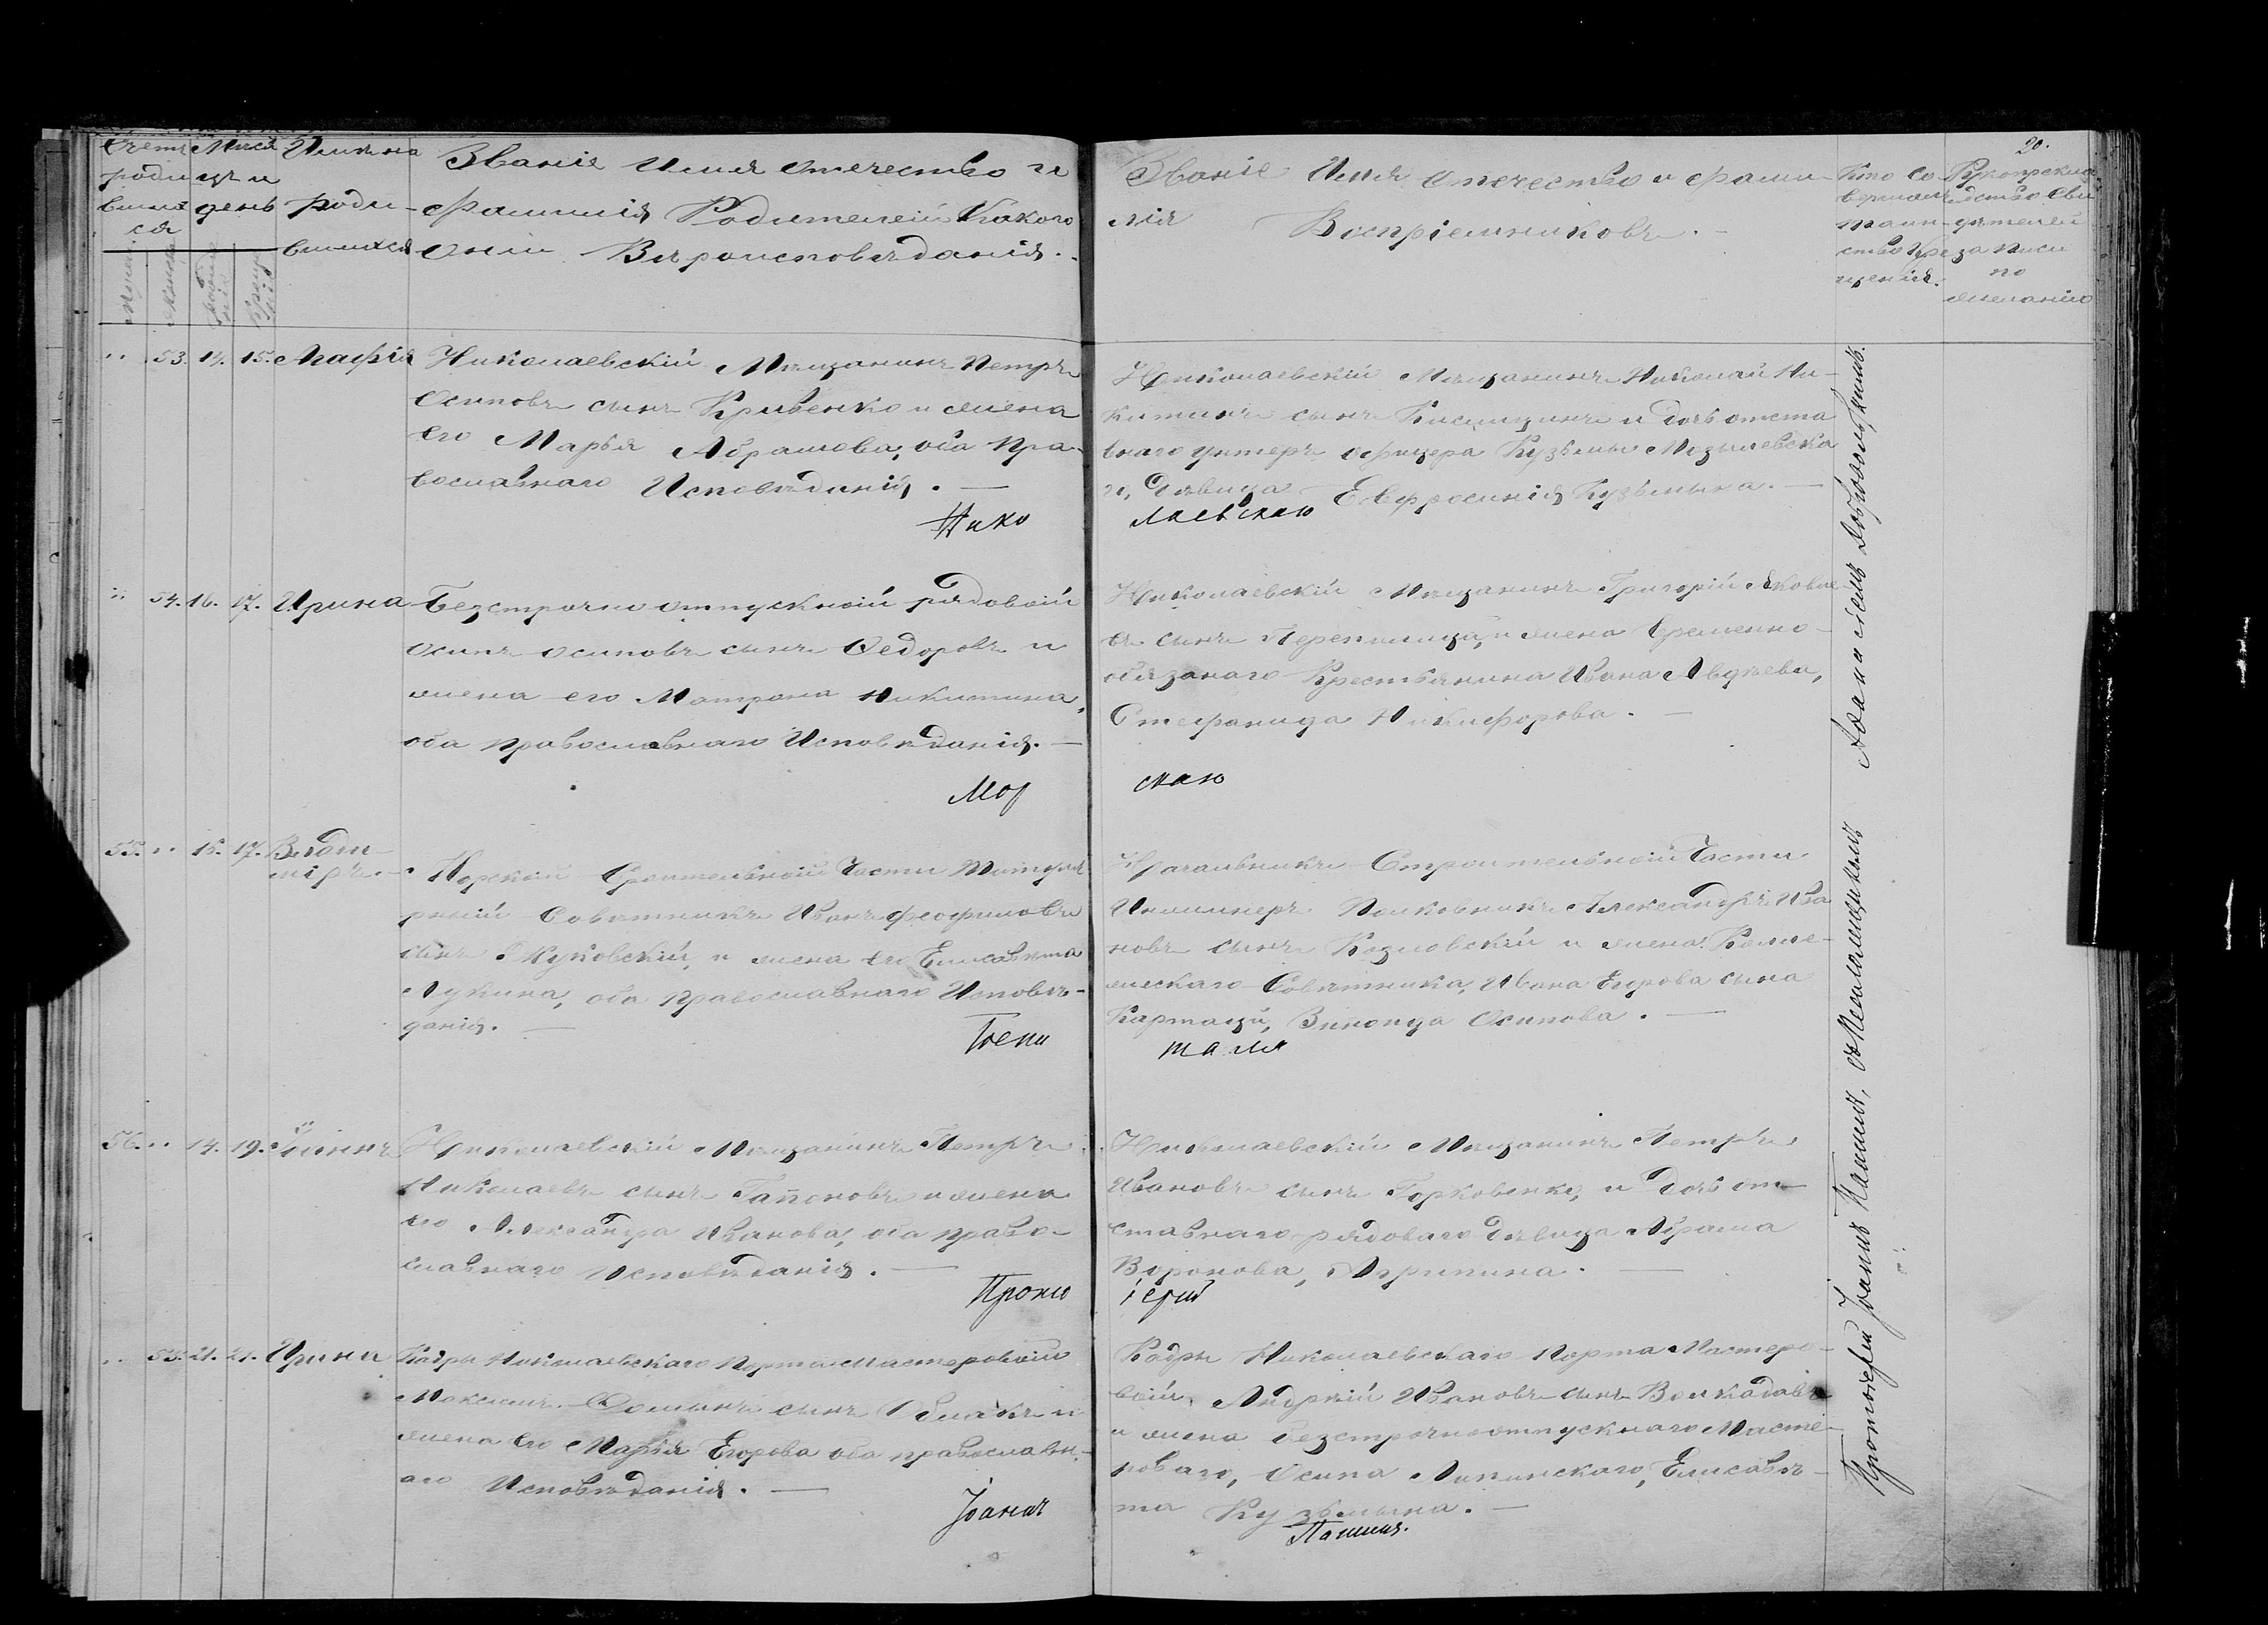 20.
Счетъ родившихся
Мужеска
Женска
Мѣсяцъ и день
Рожденія
Крещенія
Имена родившихся
Званіе Имя отечество и
фамилія Родителей Какого
они Вѣроисповѣданія.
Званіе Имя отечество и фами-
лія Воспріемниковъ.
Кто со-
вершалъ
таин-
ство Кре
щенія.
Рукоприкла
дство сви
дѣтелей
записи
по
желанію
53. 14. 15.
Николаевскій Мѣщанинъ Петръ
Осиповъ сынъ Кривенко и жена
его Марья Абрамова, оба пра-
вославнаго Исповѣданія. —
Нико
Николаевскій Мѣщанинъ Николай Ни-
китинъ сынъ и дочь отста
внаго унтеръ офицера Кузьмы
го, Дѣвица Евфросинія Кузьмина. —
лаевскаго
54. 16. 17. Ирина
Безсрочно отпускной рядовой
Осипъ Осиповъ сынъ Федоровъ и
жена его Матрона Никитина,
оба православнаго Исповѣданія. —
Мор
Николаевскій Мѣщанинъ Григорій Яковле
въ сынъ Перепелица, и жена временно-
обязанаго Крестьянина Ивана Авдѣева,
Стефанида Никифорова. —
скаго
55. 15. 17. Влади-
міръ.
Морской Строительной Части Титуля
рный Совѣтникъ Иванъ Феофиловъ
сынъ Жуковскій, и жена его Елисавета
Лукина, оба православнаго Исповѣ-
данія. —
Госпи
Начальникъ Строительной Части
Инжинеръ Полковникъ Александръ Ива
новъ сынъ Козловскій и жена Колле-
жскаго Совѣтника, Ивана Егорова сына
Зинаида Осипова. —
таля
56. 14. 19. Іоаннъ
Николаевскій Мѣщанинъ Петръ
Николаевъ сынъ Гапоновъ и жена
его Александра Иванова, оба право-
славнаго Исповѣданія. —
Прото
Николаевскій Мѣщанинъ Петръ
Ивановъ сынъ Горковенко, и дочь от-
ставнаго рядоваго дѣвица Абрама
Воронова, Агрипина. —
іерей
55. 21. 21. Ирина
Кадры Николаевскаго Порта Мастеровой
Максимъ сынъ и
жена его Марья Егорова оба православн-
аго Исповѣданія. —
Іоаннъ
Кадры Николаевскаго Порта Мастеро-
вой, Андрей Ивановъ сынъ Волкодавъ
и жена безсрочноотпускнаго Масте-
роваго, Осипа Липинскаго, Елисаве-
та Кузьмина. —
Пашинъ.
Протоіерей Іоаннъ Пашинъ, съ псаломщикомъ